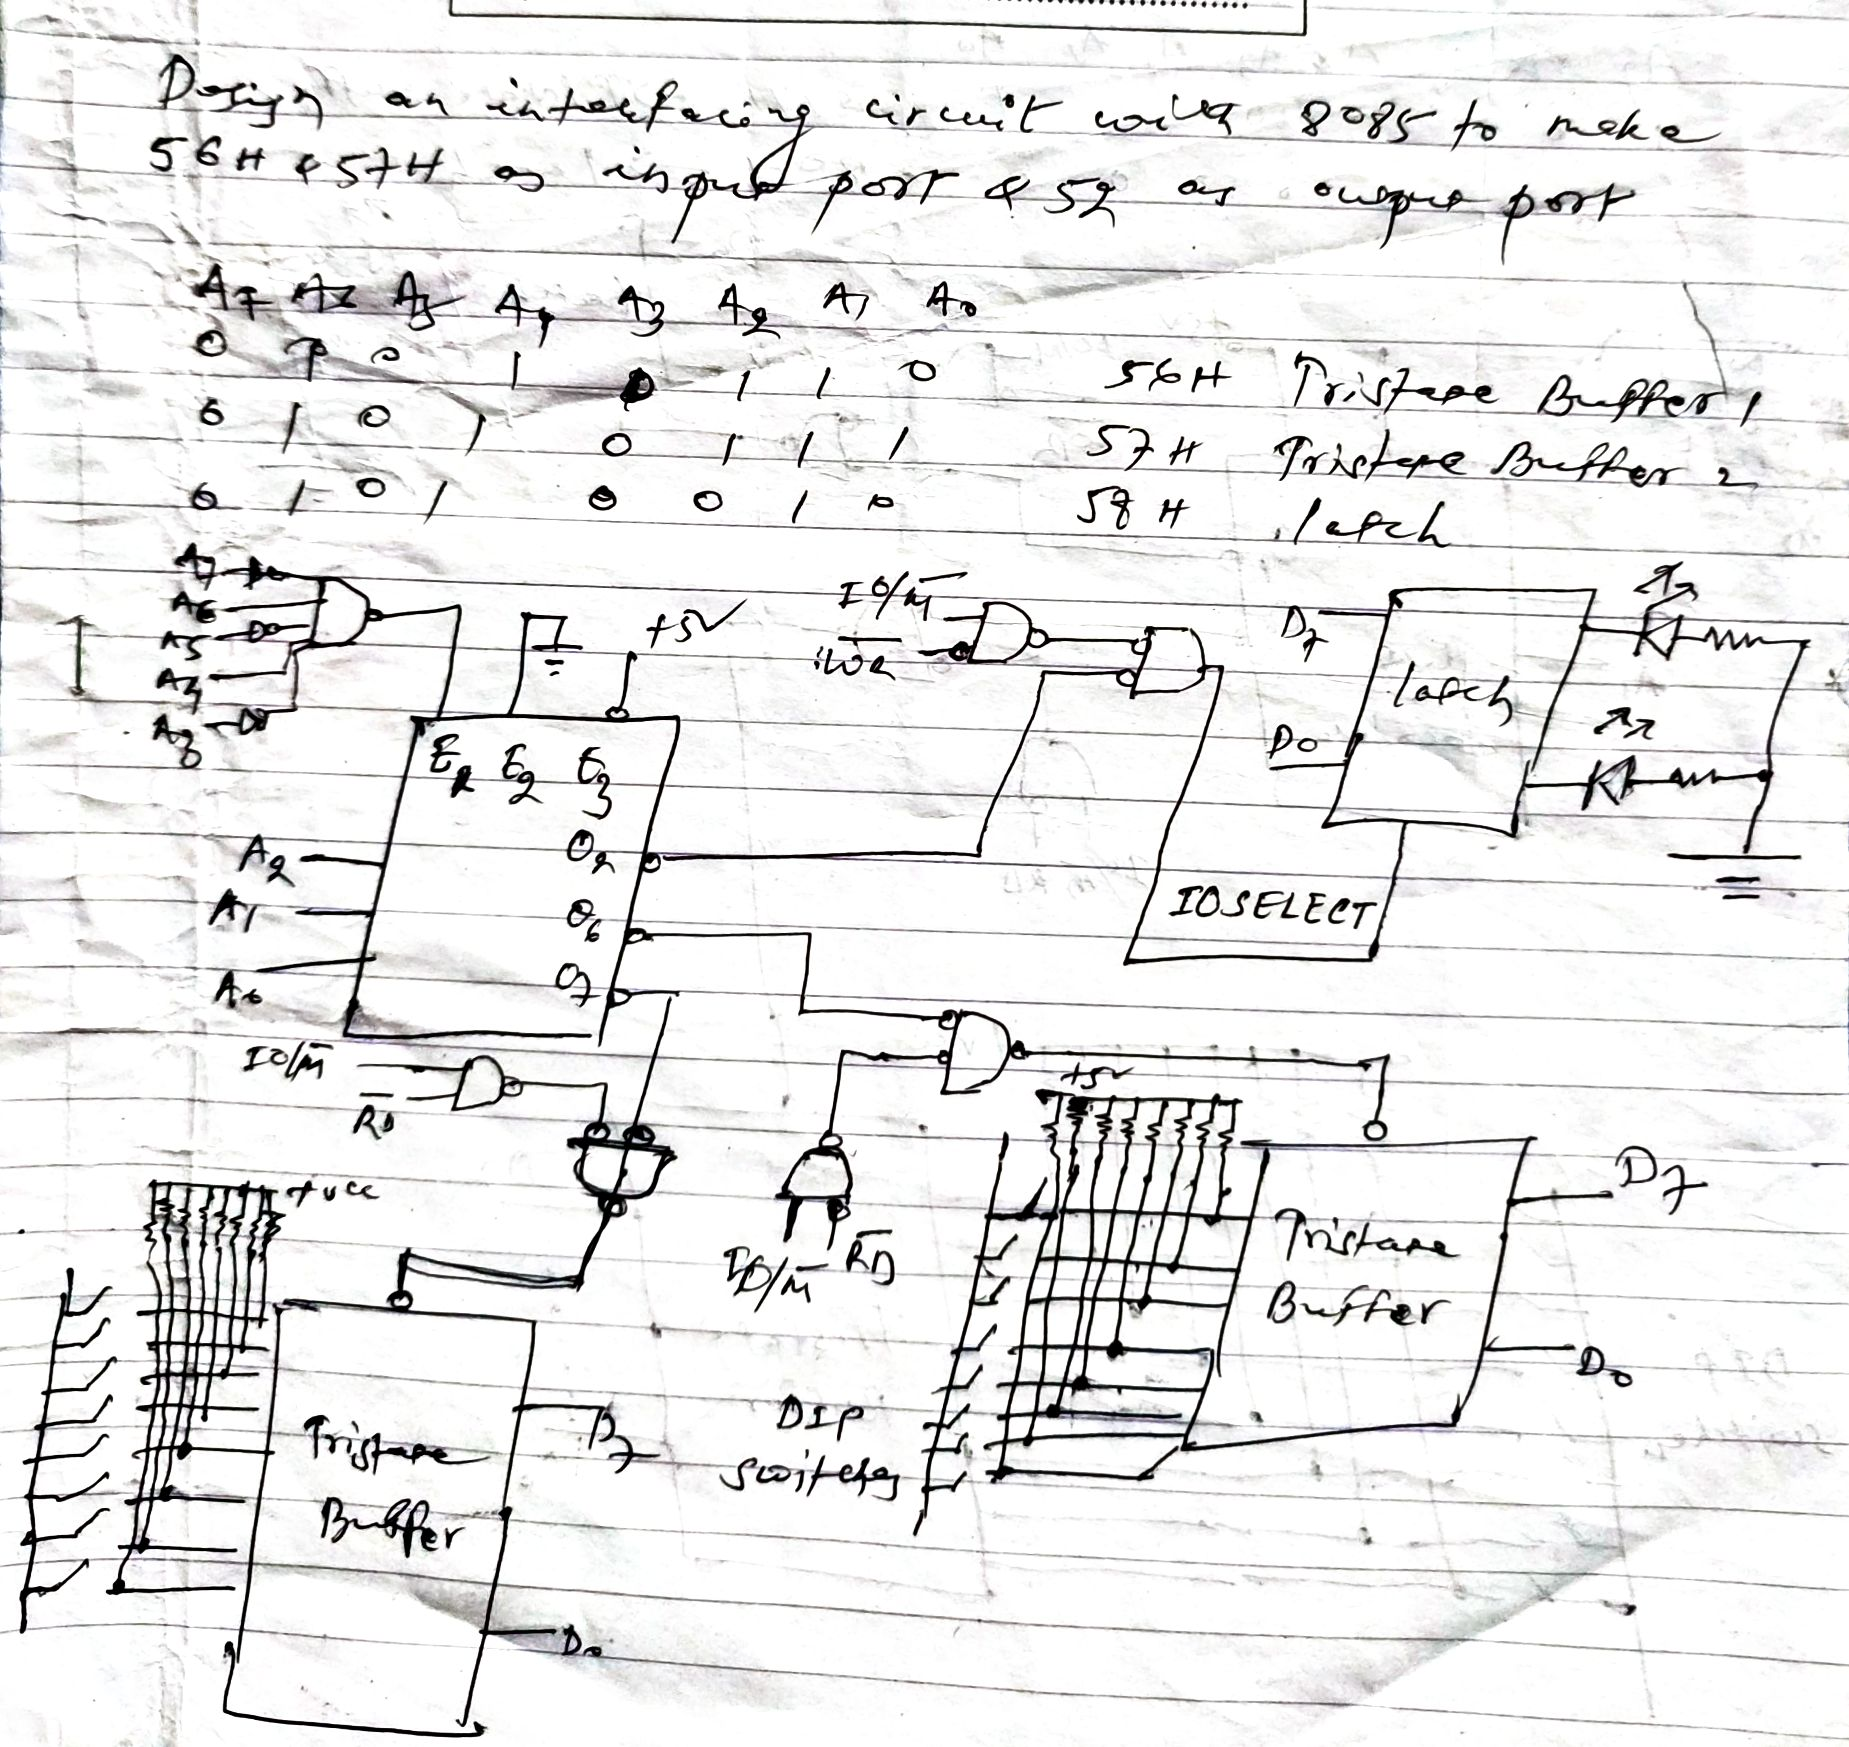 Design an interfacing circuit with 8085 to make
56H & 57H as input port & 52 as output port
A7 A6 A5 A4 A3 A2 A1 A0
0 1 0 1 0 1 1 0 56H Tristate Buffer 1
0 1 0 1 0 1 1 1 57H Tristate Buffer 2
0 1 0 1 0 0 1 0 52 H latch
A7
A6
A5
A4
A3
+5V
IO/M̅
W̅R̅
D7
latch
D0
E1 E2 E3
O2
O6
O7
A2
A1
A0
IOSELECT
IO/M̅
R̅D̅
+5V
+Vcc
IO/M̅ R̅D̅
Tristate
Buffer
D7
D0
DIP
switches
Tristate
Buffer
D7
D0